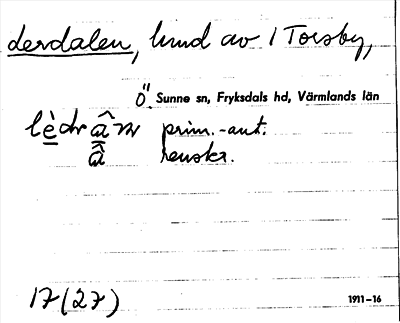 derdalen, hmd av 1 Torsby,
Ö" Sunne sn, Fryksdals hd, Värmlands län
prim.-ant.
renskr.
17(27)
1911–16